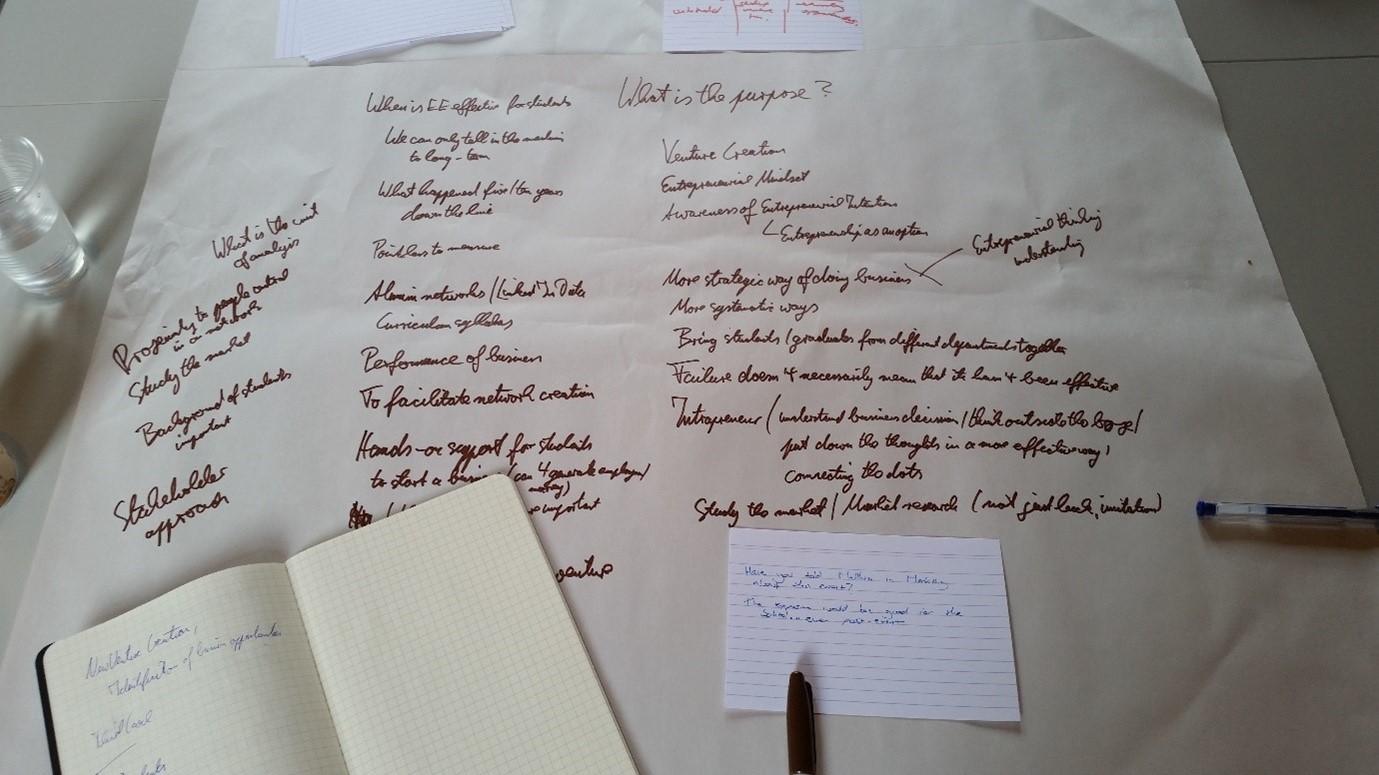 What is the unit
of analysis
Proximity to people
in a network
Study the market
Background of students
important
Stakeholder
approach
When is EE effective for students
We can only tell in the medium
to long-term
What happened five/ten years
down the line
to measure
Alumni networks/LinkedIn Data
Curriculum syllabus
Performance of business
To facilitate network creation
Hands-on support for students
to start a business (can 4 generate
money)
important
venture
What is the purpose?
Venture Creation
Entrepreneurial Mindset
Awareness of Entrepreneurial Intention
Entrepreneurship as an option
More strategic way of doing business
Entrepreneurial thinking
understanding
More systematic ways
Bring students/graduates from different departments together
Failure doesn't necessarily mean that it hasn't been effective
Intrapreneur (understand business decision/think outside the box/
put down the thoughts in a more effective way,
connecting the dots
Study the market/Market research (not just luck, imitation)
Have you told in Marketing
about this event?
The would be good for the
School
New Venture Creation,
Identification of business opportunities